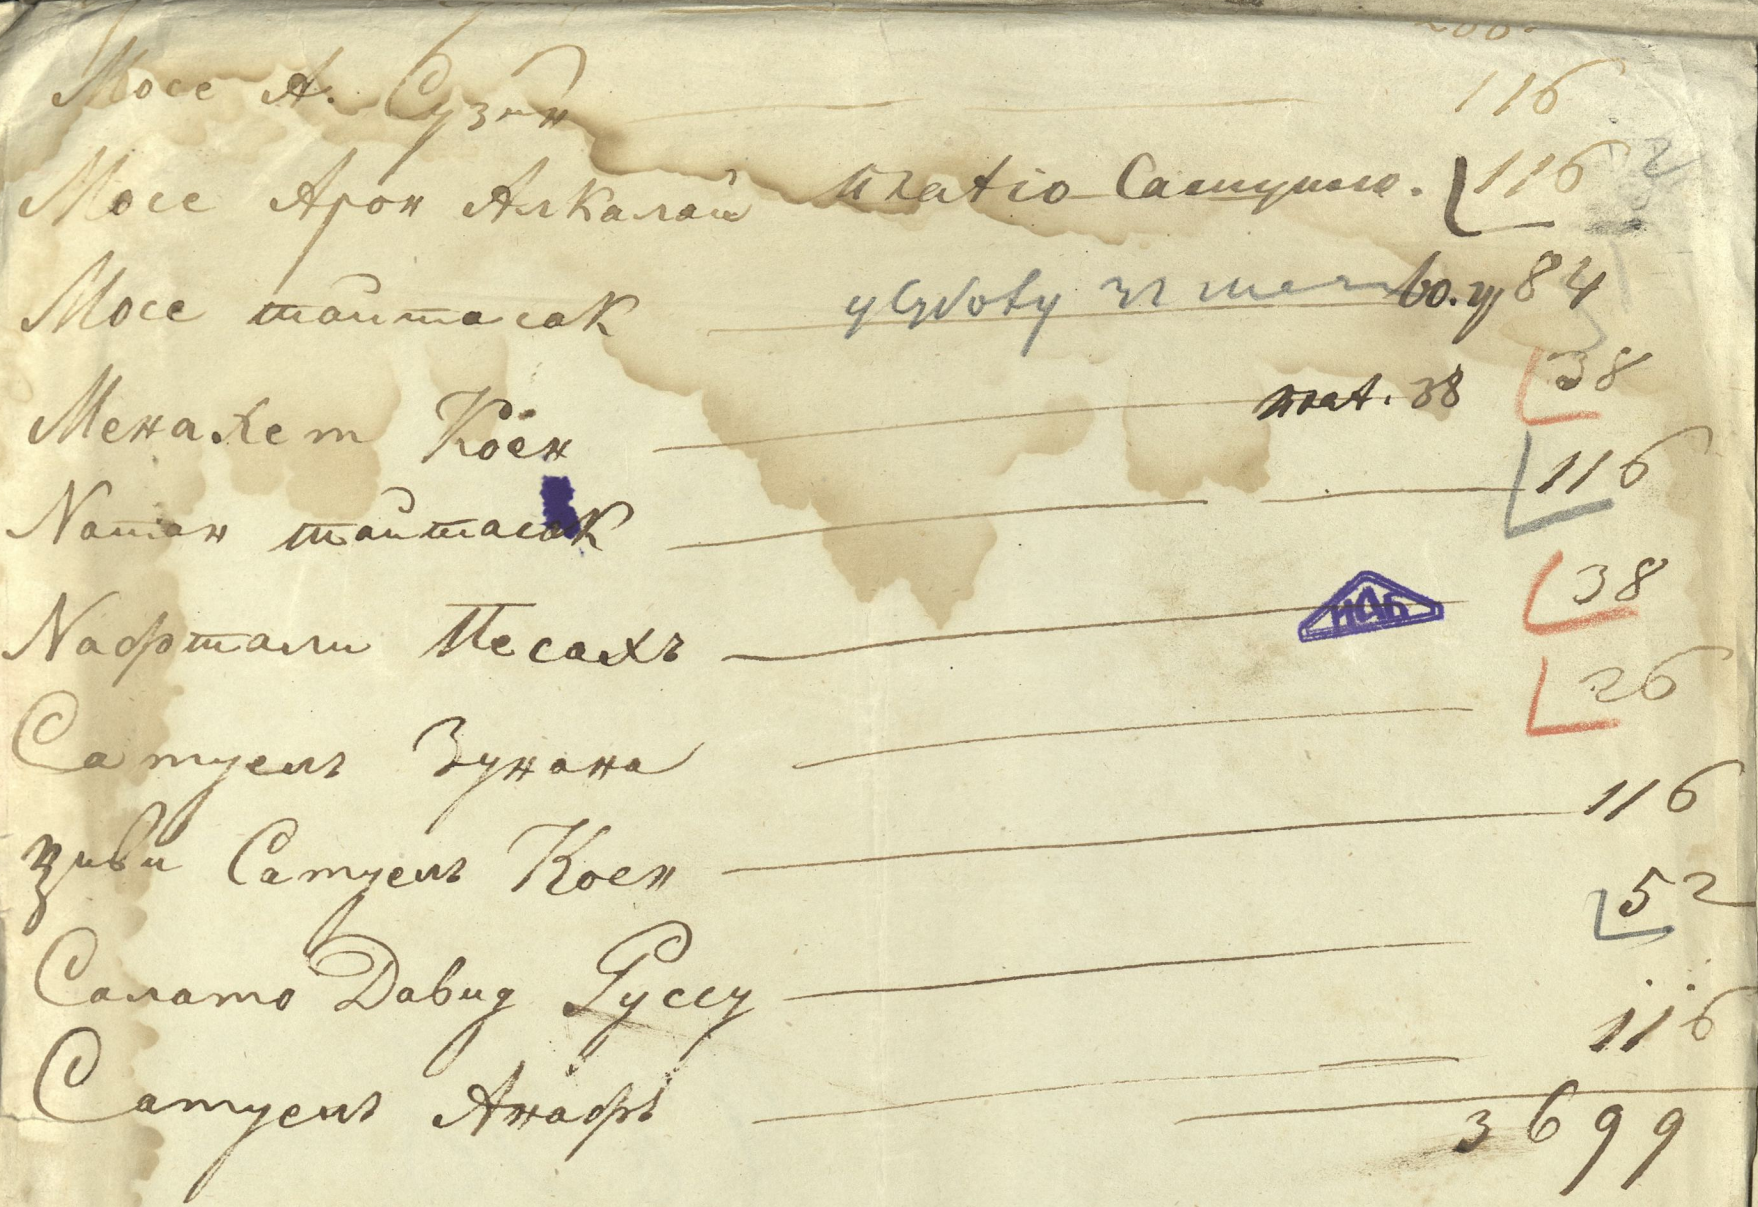 Мосе А. Сузин 116
Мосе Арон Алкалай платіо Самуило. 116
Мосе таитасак 84
Менахем Коен плат. 38 38
Натан таитасак 116
Нафтали Песахъ 38
Самуелъ Зунана 26
Циви Самуелъ Коен 116
Саламо Давид Руссу 52
Самуелъ Анафъ 116
3699